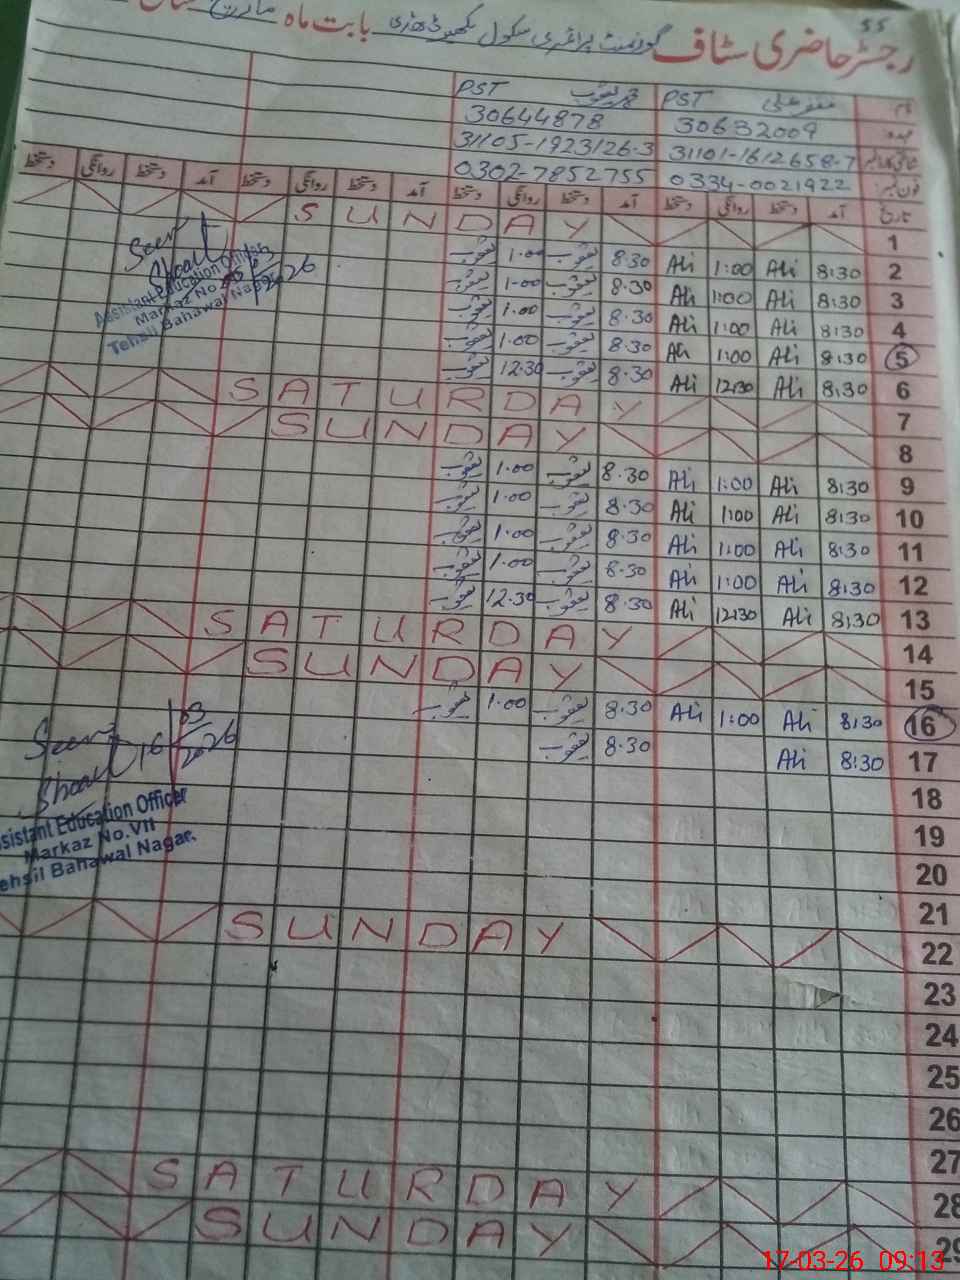 55
رجسٹر حاضری سٹاف گورنمنٹ پرائمری سکول بابت ماہ مارچ
نام PST PST محمد یعقوب
عہدہ 30632009 30644878
شناختی کارڈ نمبر 31101-1612658-7 31105-1923126-3
فون نمبر: 0334-0021922 0302-7852755
تاریخ آمد دستخط روانگی دستخط آمد دستخط روانگی دستخط آمد دستخط روانگی دستخط
1 SUNDAY
2 8:30 Ali 1:00 Ali 8.30 یعقوب 1.00 یعقوب
3 8:30 Ali 1:00 Ali 8.30 یعقوب 1.00 یعقوب
4 8:30 Ali 1:00 Ali 8.30 یعقوب 1.00 یعقوب
5 8:30 Ali 1:00 Ali 8.30 یعقوب 1.00 یعقوب
6 8:30 Ali 12:30 Ali 8.30 یعقوب 12.30 یعقوب
7 SATURDAY
8 SUNDAY
9 8:30 Ali 1:00 Ali 8.30 یعقوب 1.00 یعقوب
10 8:30 Ali 1:00 Ali 8.30 یعقوب 1.00 یعقوب
11 8:30 Ali 1:00 Ali 8.30 یعقوب 1.00 یعقوب
12 8:30 Ali 1:00 Ali 8.30 یعقوب 1.00 یعقوب
13 8:30 Ali 12:30 Ali 8.30 یعقوب 12.30 یعقوب
14 SATURDAY
15 SUNDAY
16 8:30 Ali 1:00 Ali 8.30 یعقوب 1.00 یعقوب
17 8:30 Ali 8.30 یعقوب
18
19
20
21
22 SUNDAY
23
24
25
26
27
28 SATURDAY
29 SUNDAY
Seen
Assistant Education Officer
Markaz No.
Tehsil Bahawal Nagar
Seen
16/03/2026
ssistant Education Officer
Markaz No.VII
ehsil Bahawal Nagar.
17-03-26 09:13